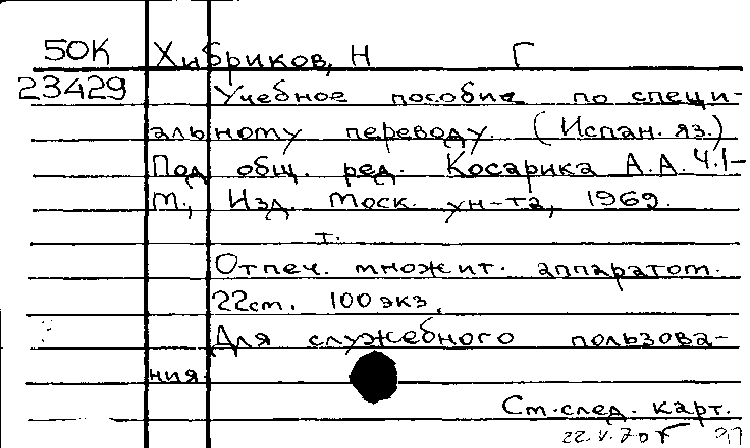 50К Хибриков, Н Г
23429 Учебное пособие по специ-
альному переводу. (Испан. яз.)
Под общ. ред. Косарика А.А. Ч.1-
М., Изд. Моск. ун-та, 1969.
т.
Отпеч. множит. аппаратом.
22см. 100 экз.
Для служебного пользова-
ния
См. след. карт.
22.V.70г